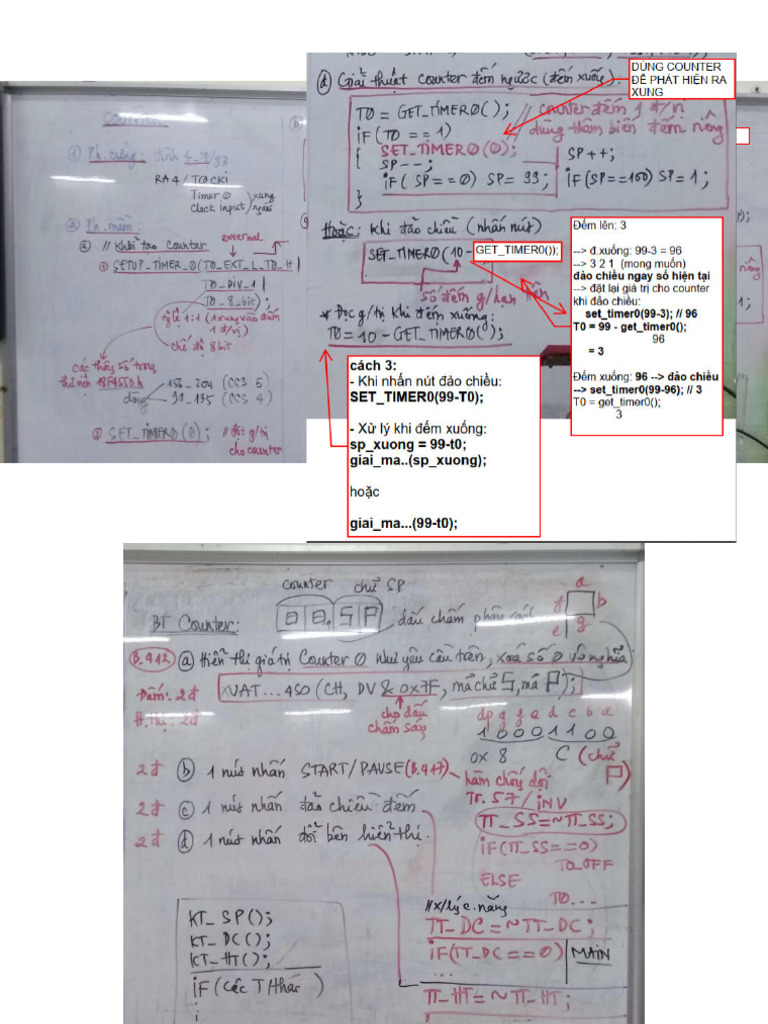 COUNTER
① Ph.cứng: tính 4_7/93
RA4/T0CKI
Timer 0
Clock input
xung
ngoài
② Ph.mềm:
ⓐ // Khởi tạo Counter
external
① SETUP_TIMER_0(T0_EXT_L_TO_H |
T0_DIV_1 |
T0_8_bit);
tỷ lệ 1:1 (1 xung vào đếm
1 đ/vị)
chế độ 8 bit
các thông số trong
thư viện 18F4550.h
156_204 (CCS 5)
dòng
99_135 (CCS 4)
② SET_TIMER0(0); // đặt g/trị
cho counter
ⓓ Giải thuật Counter đếm ngược (đếm xuống):
DÙNG COUNTER
ĐỂ PHÁT HIỆN RA
XUNG
T0 = GET_TIMER0(); // counter đếm 1 đ/vị
IF(T0 == 1) dùng thêm biến đếm riêng
SET_TIMER0(0);
{ SP--; SP++;
IF(SP==0) SP=99; IF(SP==100) SP=1;
}
Hoặc: Khi đảo chiều (nhấn nút)
SET_TIMER0(10 - GET_TIMER0());
số đếm g/hạn trên
* Đọc g/trị khi đếm xuống:
T0 = 10 - GET_TIMER0();
Đếm lên: 3
--> đ.xuống: 99-3 = 96
--> 3 2 1 (mong muốn)
đảo chiều ngay số hiện tại
--> đặt lại giá trị cho counter
khi đảo chiều:
set_timer0(99-3); // 96
T0 = 99 - get_timer0();
96
= 3
Đếm xuống: 96 --> đảo chiều
--> set_timer0(99-96); // 3
T0 = get_timer0();
3
cách 3:
- Khi nhấn nút đảo chiều:
SET_TIMER0(99-T0);
- Xử lý khi đếm xuống:
sp_xuong = 99-t0;
giai_ma..(sp_xuong);
hoặc
giai_ma...(99-t0);
counter chữ SP
BT Counter:
0 0. S P
dấu chấm phân cách
a
f b
g
e
B.412 ⓐ Hiển thị giá trị Counter 0 như yêu cầu trên, xoá số 0 vô nghĩa
Đếm: 2đ
XUAT...4SO(CH, DV & 0x7F, mã chữ S, mã P);
H.thị: 2đ
cho dấu
chấm sáng
dp g f e d c b a
1 0 0 0 1 1 0 0
0x 8 C (chữ
P)
2đ ⓑ 1 nút nhấn START/PAUSE (B.417)
hàm chống dội
Tr.57 / INV
2đ ⓒ 1 nút nhấn đảo chiều đếm
TT_SS=~TT_SS;
2đ ⓓ 1 nút nhấn đổi bên hiển thị.
IF(TT_SS==0)
T0_OFF
ELSE
T0...
KT_SP();
KT_DC();
KT_HT();
IF(các T/thái )
//x/lý c.năng
TT_DC=~TT_DC;
IF(TT_DC==0) MAIN
...
TT_HT=~TT_HT;